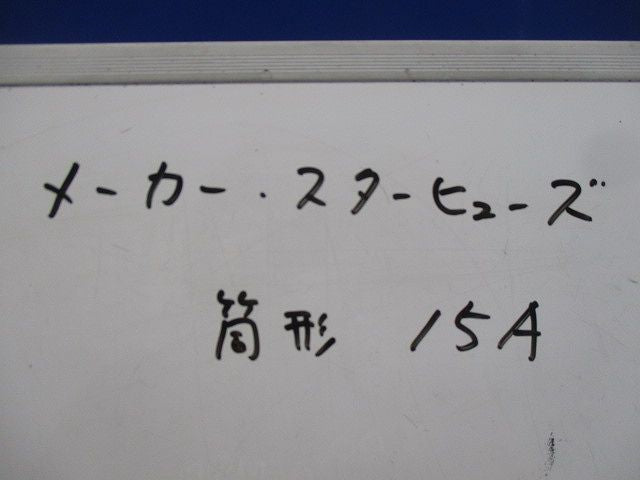 メーカー・スターヒューズ
筒形 15A